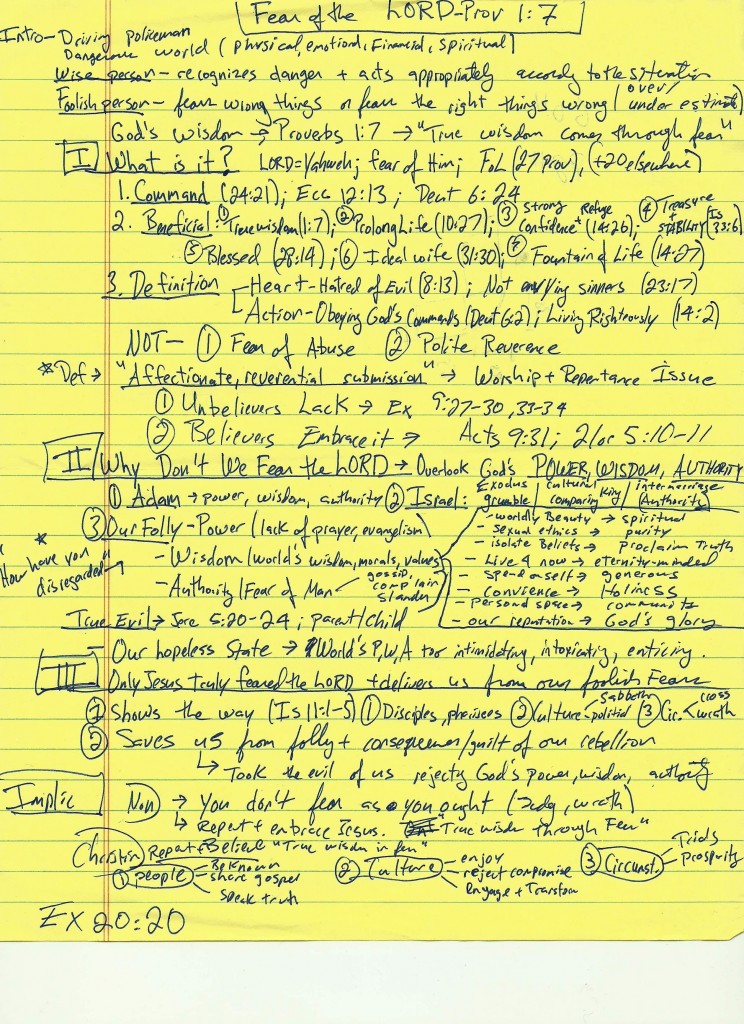 Fear of the LORD - Prov 1:7
Intro - Driving policeman
Dangerous world (physical, emotional, Financial, Spiritual)
Wise person - recognizes danger + acts appropriately accordy to the situation
Foolish person - fears wrong things or fears the right things wrong (over/under estimate)
God's wisdom → Proverbs 1:7 → "True wisdom comes through fear"
I What is it? LORD = Yahweh; fear of Him; FoL (27 Prov), (+20 elsewhere)
1. Command (24:21); Ecc 12:13; Deut 6:24
2. Beneficial: ① True wisdom (1:7); ② Prolong Life (10:27); ③ Strong Confidence + Refuge (14:26); ④ Treasure + STABILITY (Is 33:6)
⑤ Blessed (28:14); ⑥ Ideal wife (31:30); ⑦ Fountain of Life (14:27)
3. Definition - Heart - Hatred of Evil (8:13); Not envying sinners (23:17)
Action - Obeying God's Commands (Deut 6:2); Living Righteously (14:2)
NOT - ① Fear of Abuse ② Polite Reverence
* Def → "Affectionate, reverential submission" → Worship + Repentance Issue
① Unbelievers Lack → Ex 9:27-30, 33-34
② Believers Embrace it → Acts 9:31; 2 Cor 5:10-11
II Why Don't We Fear the LORD → Overlook God's POWER, WISDOM, AUTHORITY
① Adam → power, wisdom, authority ② Israel: Exodus grumble | cultural comparing King | intermarriage (Authority)
③ Our Folly - Power (lack of prayer, evangelism)
- worldly Beauty → spiritual
- sexual ethics → purity
- isolate Beliefs → Proclaim Truth
* "How have you disregarded"
- Wisdom (world's wisdom, morals, values)
- Live 4 now → eternity-minded
- Authority (Fear of Man) gossip, complain slander
- Spend on self → generous
- convience → Holiness
- personal space → community
True Evil → Jere 5:20-24; parent/child
- our reputation → God's glory
- Our hopeless State → World's P,W,A too intimidating, intoxicating, enticing.
III Only Jesus truly feared the LORD + delivers us from our foolish Fears
① Shows the way (Is 11:1-5) ① Disciples, pharisees ② Culture Sabbath political ③ Circ. cross wrath
② Saves us from folly + consequences/guilt of our rebellion
↳ Took the evil of us rejecty God's power, wisdom, authority
Implic Non → You don't fear as you ought (Judg, wrath)
↳ Repent + embrace Jesus. "True wisdom through Fear"
Christian Repent + Believe "True wisdom in fear"
① people - Be Known
share gospel
speak truth
② Culture - enjoy
reject compromise
Engage + Transform
③ Circumst. Trials
Prosperity
EX 20:20